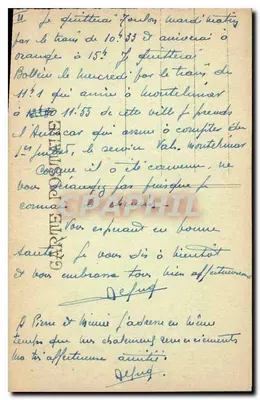 II Je quitterai Toulon mardi matin
par le train de 10h33 et arriverai à
orange à 15h. Je quitterai
le mercredi par le train de
11h1 qui arrive à montelimar
à 11h53 de cette ville je prends
l'Autocar qui assure à compter du
1er le service Val. Montelimar
il a été convenu. ne
vous dérangez pas puisque je
connais
Vous espérant en bonne
santé. Je vous dis à bientôt
et vous embrasse tous bien affectueusement
CARTE POSTALE
A Pierre et Mimie j'adresse en même
temps que mes chaleureux remerciements
ma très affectueuse amitié.